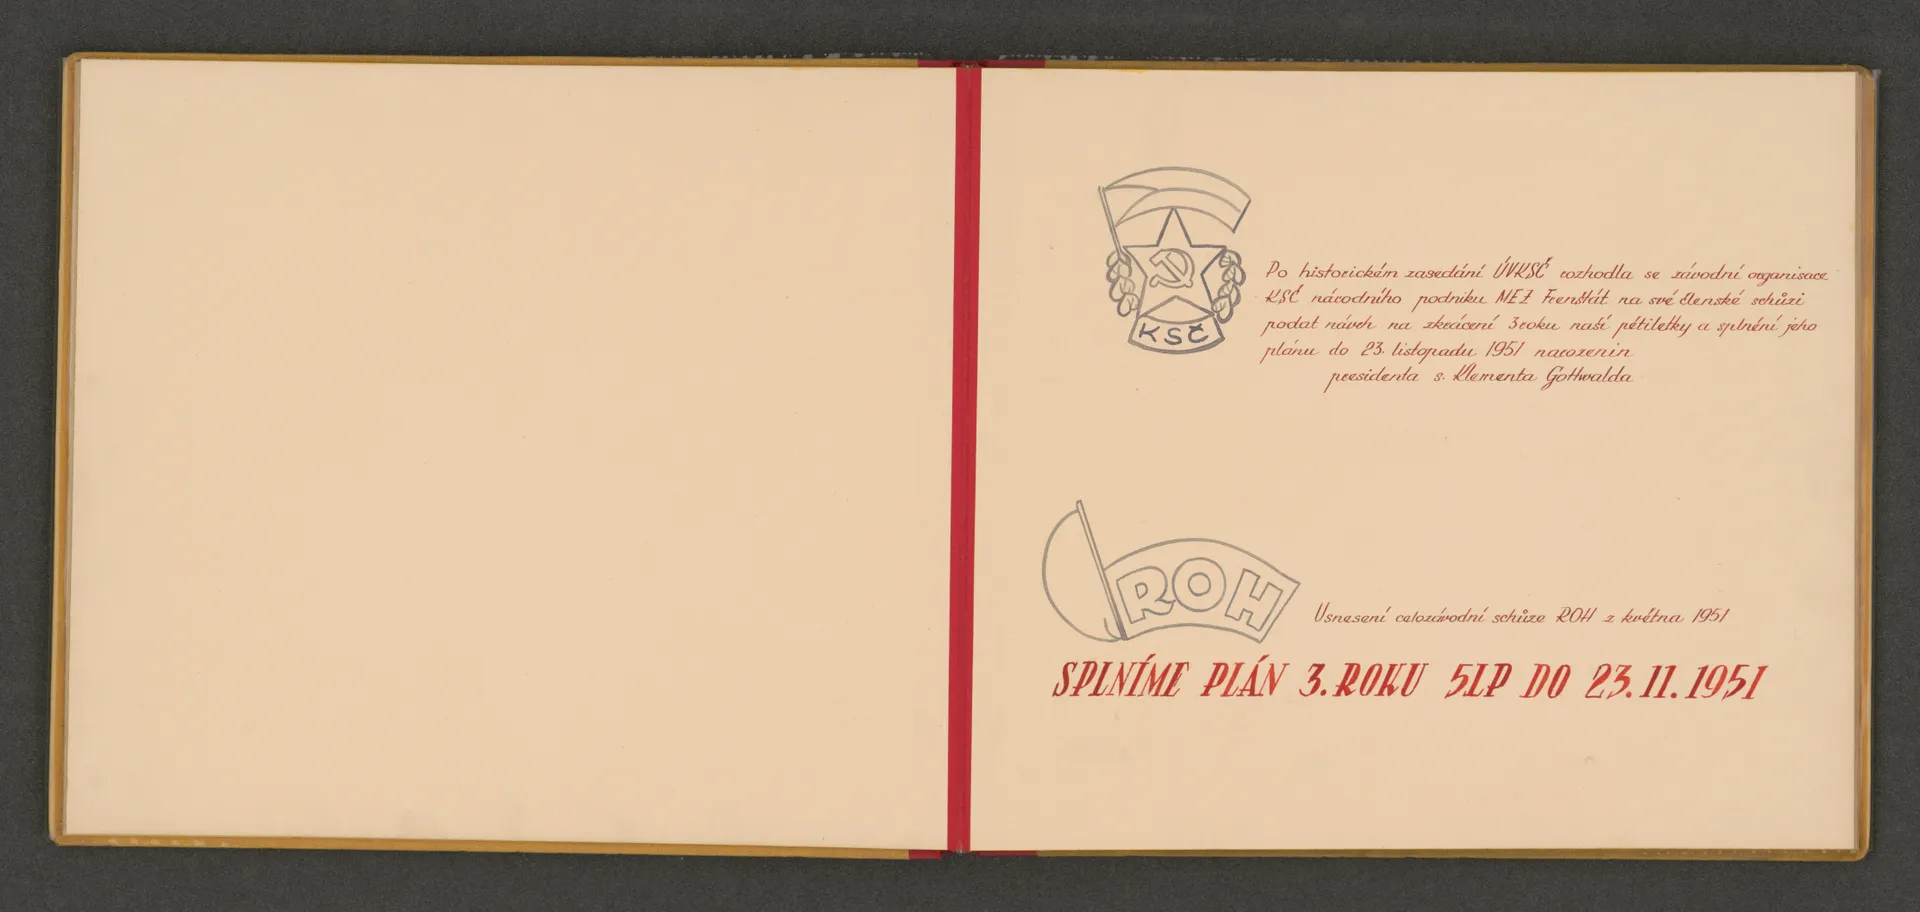 Po historickém zasedání ÚVKSČ rozhodla se závodní organisace
KSČ národního podniku MEZ Frenštát na své členské schůzi
podat návrh na zkrácení 3roku naší pětiletky a splnění jeho
plánu do 23. listopadu 1951 narozenin
presidenta s. Klementa Gottwalda
KSČ
ROH
Usnesení celozávodní schůze ROH z května 1951
SPLNÍME PLÁN 3. ROKU 5LP DO 23. 11. 1951